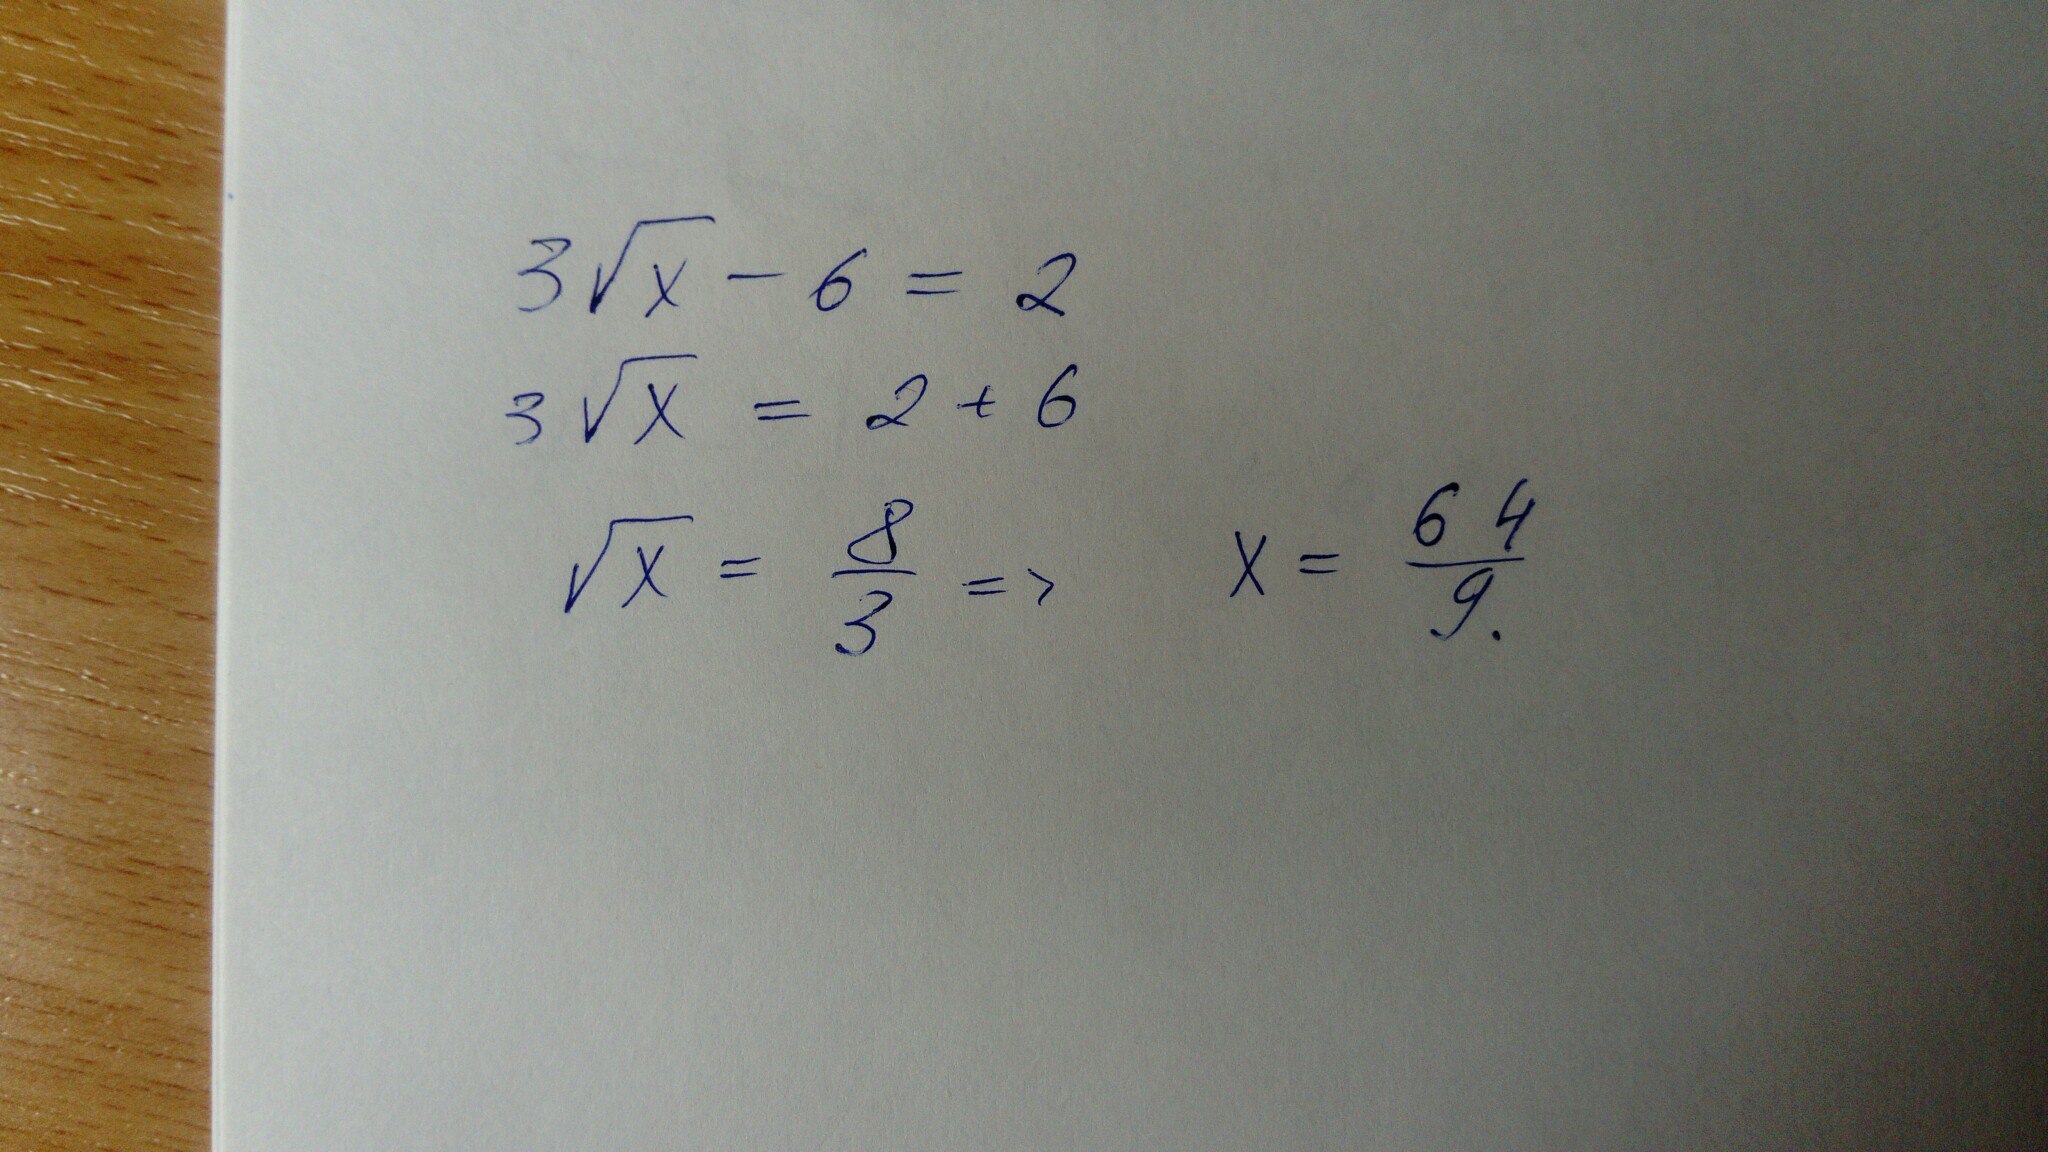 3√x - 6 = 2
3√x = 2 + 6
√x = 8/3 => x = 64/9.